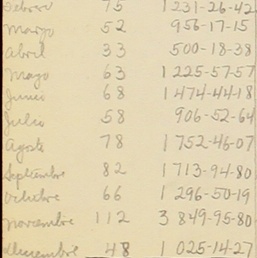 Febrero 75 1 231-26-42
Marzo 52 956-17-15
Abril 33 500-18-38
Mayo 63 1 225-57-57
Junio 68 1 474-44-18
Julio 58 906-52-64
Agosto 78 1 752-46-07
Septiembre 82 1 713-94-80
Octubre 66 1 296-50-19
Noviembre 112 3 849-95-80
Diciembre 48 1 025-14-27